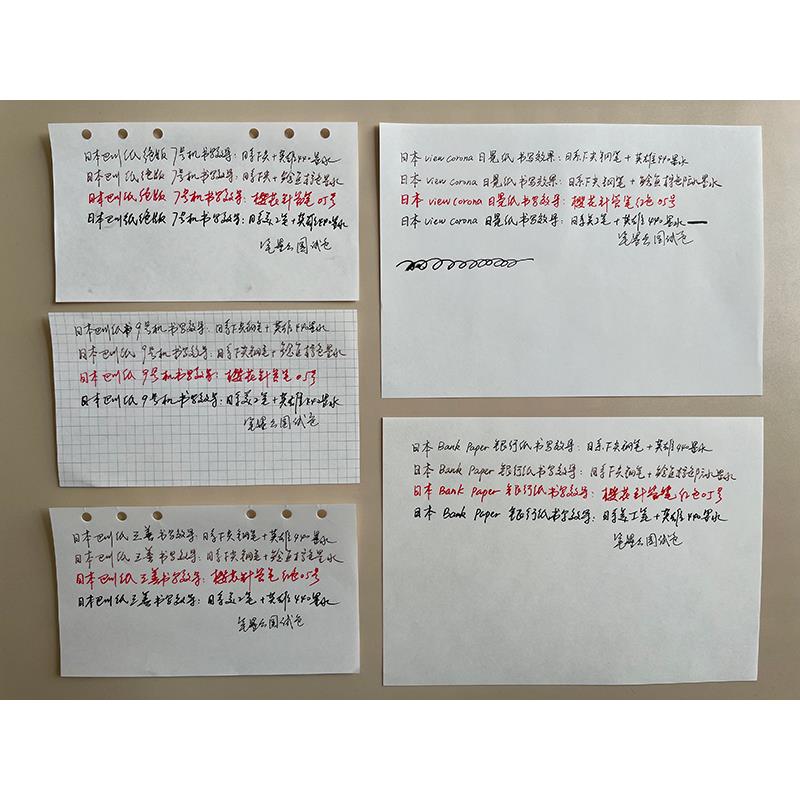 日本巴川纸绝版 7号机书写效果：日系下尖+英雄440墨水
日本巴川纸绝版 7号机书写效果：日系下尖+鲶鱼棕色墨水
日本巴川纸绝版 7号机书写效果：樱花针管笔05号
日本巴川纸绝版 7号机书写效果：日系美工笔+英雄440墨水
笔墨乐园试色
日本巴川纸 9号机书写效果：日系下尖钢笔+英雄440墨水
日本巴川纸 9号机书写效果：日系下尖钢笔+鲶鱼棕色墨水
日本巴川纸 9号机书写效果：樱花针管笔05号
日本巴川纸 9号机书写效果：日系美工笔+英雄440墨水
笔墨乐园试色
日本巴川纸三善书写效果：日系下尖钢笔+英雄440墨水
日本巴川纸三善书写效果：日系下尖钢笔+鲶鱼棕色墨水
日本巴川纸三善书写效果：樱花针管笔红色05号
日本巴川纸三善书写效果：日系美工笔+英雄440墨水
笔墨乐园试色
日本 view corona 日冕纸书写效果：日系下尖钢笔+英雄440墨水
日本 view corona 日冕纸书写效果：日系下尖钢笔+鲶鱼棕色防水墨水
日本 view corona 日冕纸书写效果：樱花针管笔红色05号
日本 view corona 日冕纸书写效果：日系美工笔+英雄440墨水
笔墨乐园试色
日本 Bank Paper 银行纸书写效果：日系下尖钢笔+英雄440墨水
日本 Bank Paper 银行纸书写效果：日系下尖钢笔+鲶鱼棕色防水墨水
日本 Bank Paper 银行纸书写效果：樱花针管笔红色05号
日本 Bank Paper 银行纸书写效果：日系美工笔+英雄440墨水
笔墨乐园试色